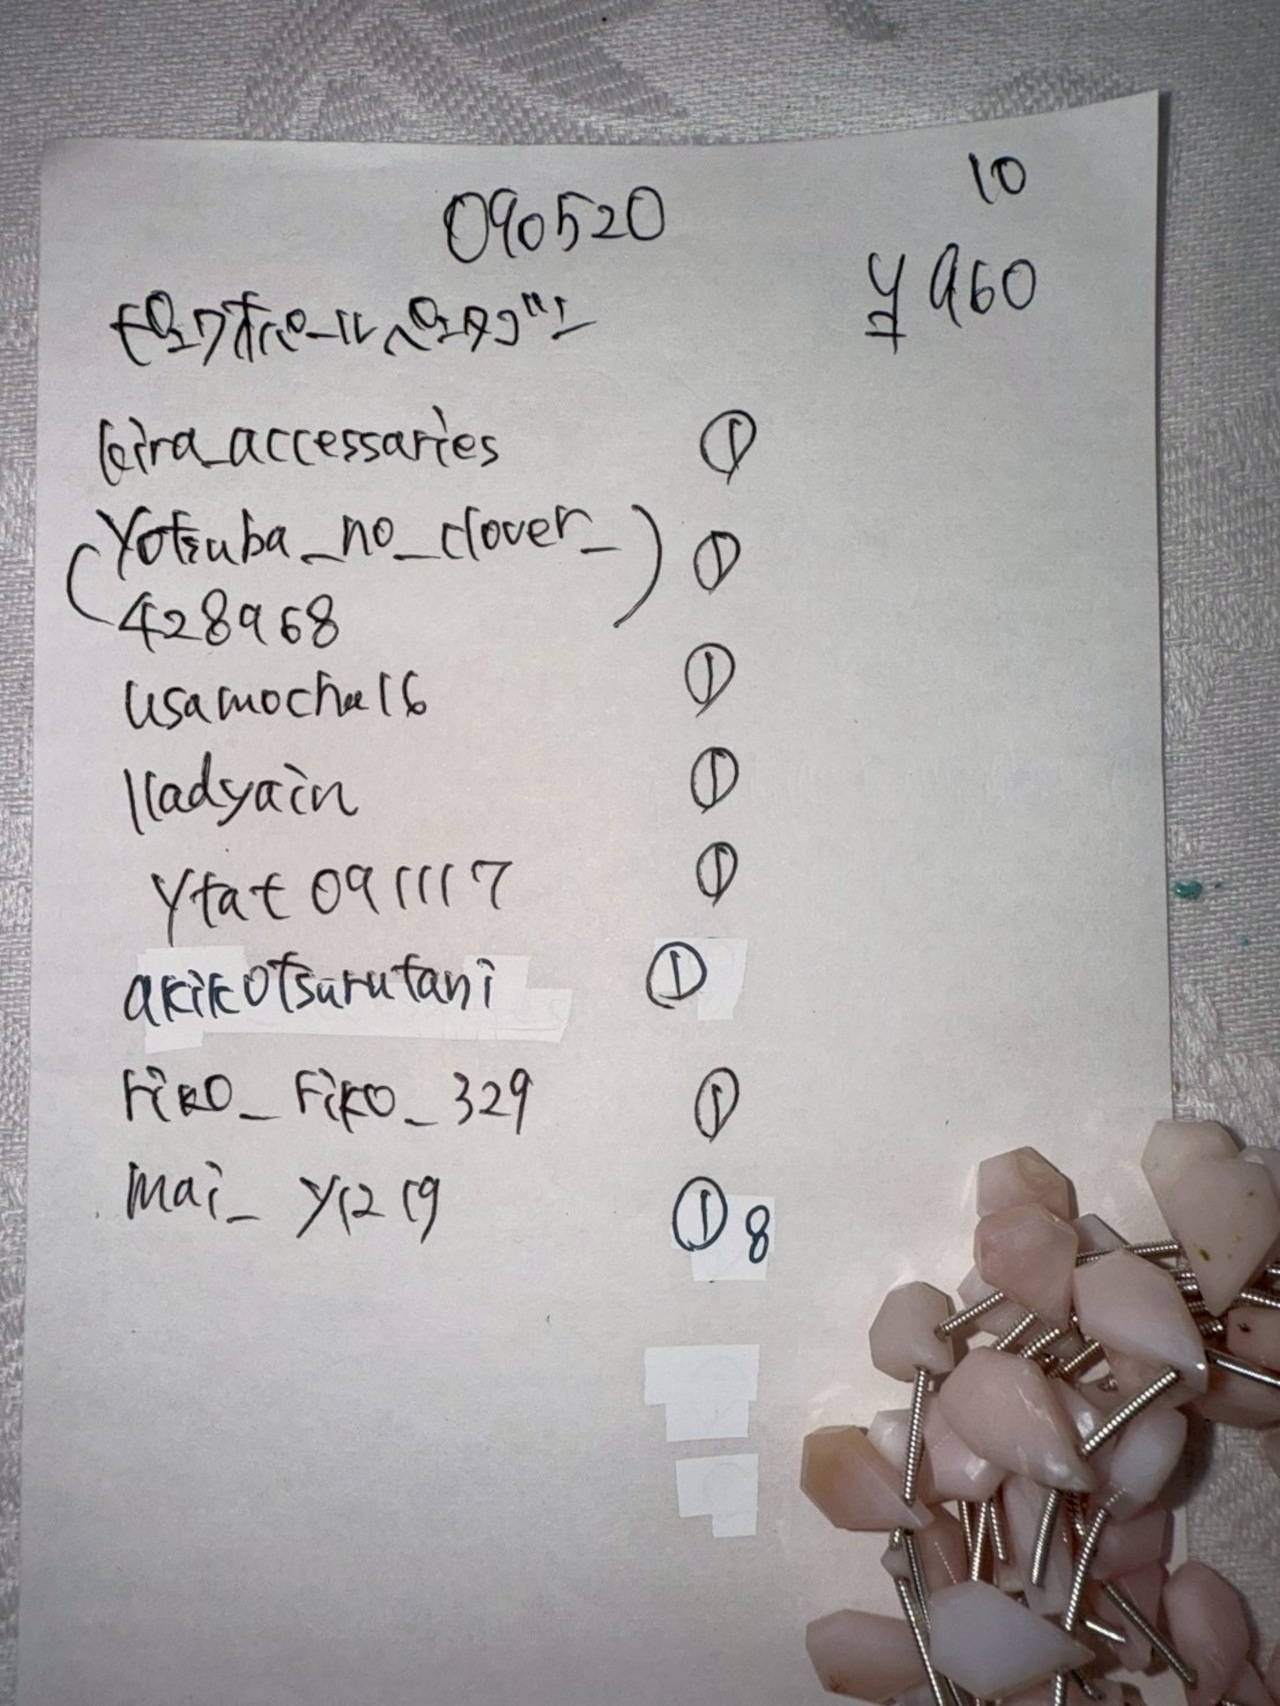 10
090520
¥960
ピンクオパールペンタゴン
keira_accessaries ①
(Yotsuba_no_clover_ ①
428968)
usamocha16 ①
lladyain ①
ytat091117 ①
akikotsurutani ①
riko_riko_329 ①
mai_y1219 ① 8